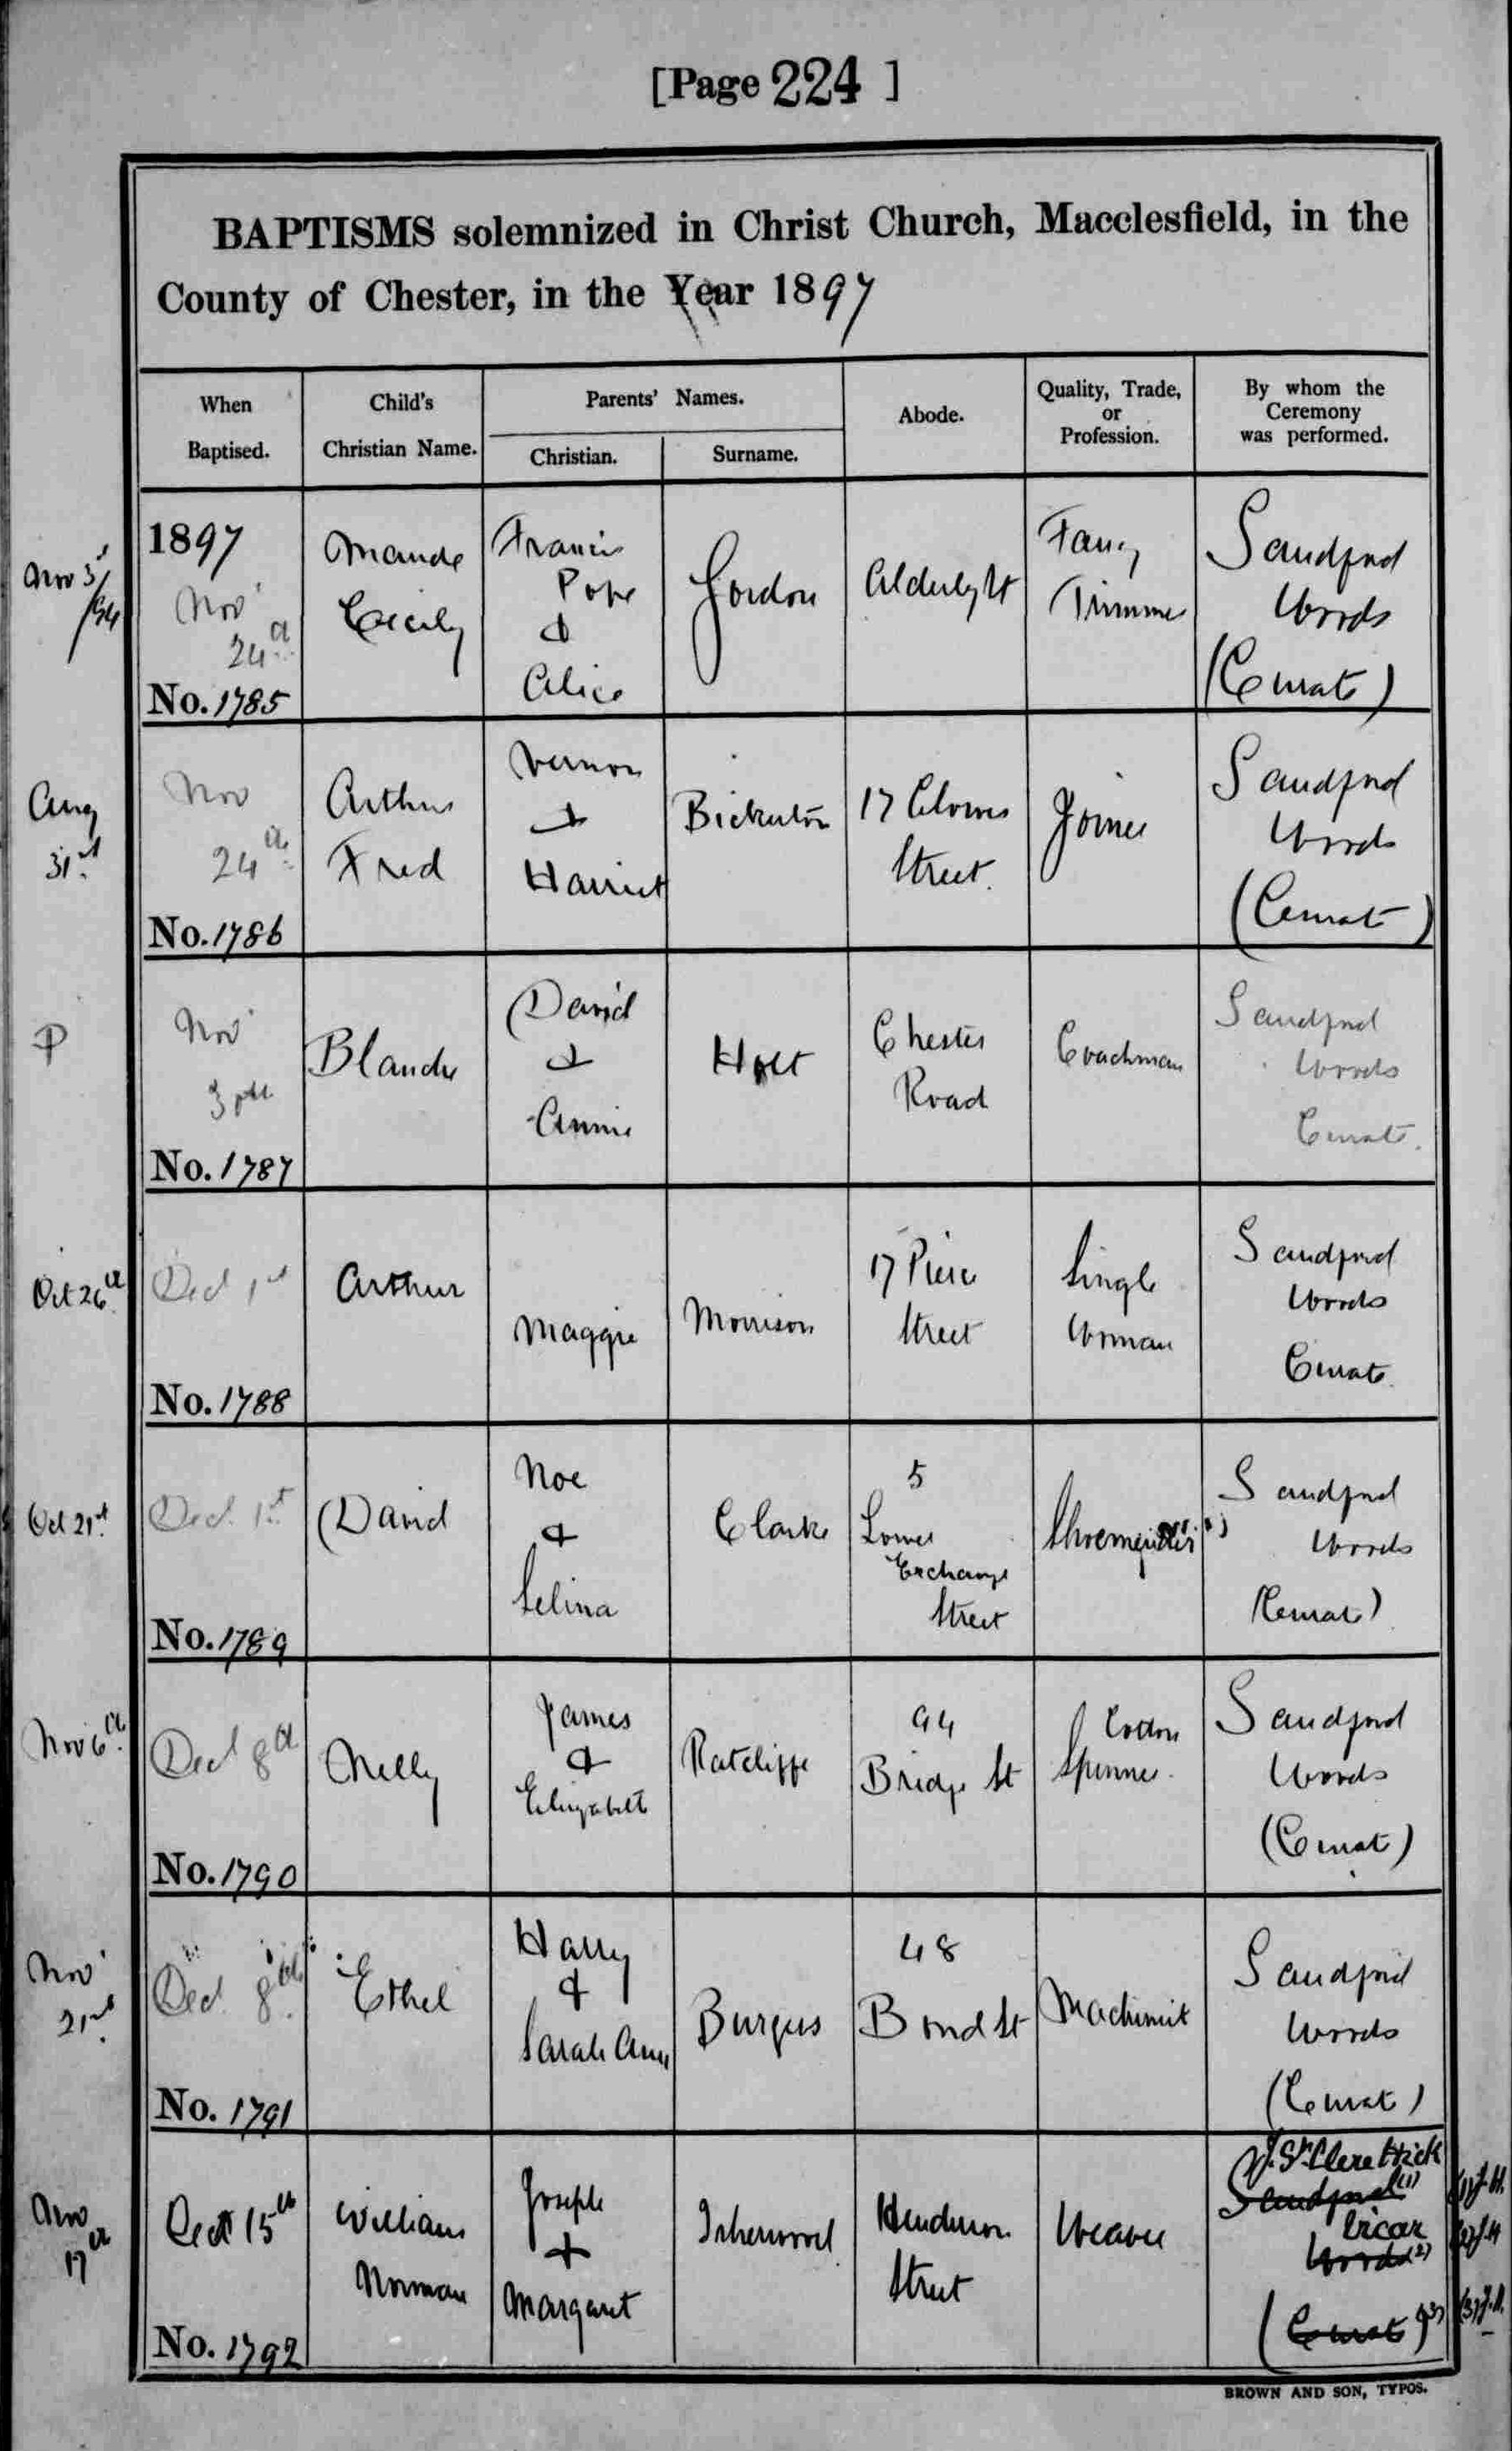 [Page 224 ]
BAPTISMS solemnized in Christ Church, Macclesfield, in the
County of Chester, in the Year 1897
When
Baptised.
Child's
Christian Name.
Parents' Names.
Christian.
Surname.
Abode.
Quality, Trade,
or
Profession.
By whom the
Ceremony
was performed.
Nov 3
/94
1897
Nov
24th
No. 1785
Maude
Cicily
Francis
Pope
&
Alice
Gordon
Alderley St
Fancy
Trimmer
Sandford
Woods
(Curate)
Aug
31st
Nov
24th
No. 1786
Arthur
Fred
Vernon
&
Harriet
Bickerton
17 Clowes
Street.
Joiner
Sandford
Woods
(Curate)
P
Nov
30th
No. 1787
Blanche
David
&
Annie
Holt
Chester
Road
Coachman
Sandford
Woods
Curate.
Oct 26th
Dec 1st
No. 1788
Arthur
Maggie
Morrison
17 Pierce
Street
Single
Woman
Sandford
Woods
Curate
Oct 21st
Dec. 1st
No. 1789
David
Noe
&
Selina
Clarke
5
Lower
Exchange
Street
Shoemender
Sandford
Woods
(Curate)
Nov 6th
Dec 8th
No. 1790
Nelly
James
&
Elizabeth
Ratcliffe
94
Bridge St
Cotton
Spinner.
Sandford
Woods
(Curate)
Nov
21st
Dec. 8th
No. 1791
Ethel
Harry
&
Sarah Ann
Burgess
48
Bond St
Machinist
Sandford
Woods
(Curate)
Nov
17th
Dec 15th
No. 1792
William
Norman
Joseph
&
Margaret
Isherwood
Henderson
Street
Weaver
J. St. Clere Hick
Sandford (1)
Vicar
Woods (2)
(Curate) (3)
(1) J.H.
(2) J.H.
(3) J.H.
BROWN AND SON, TYPOS.